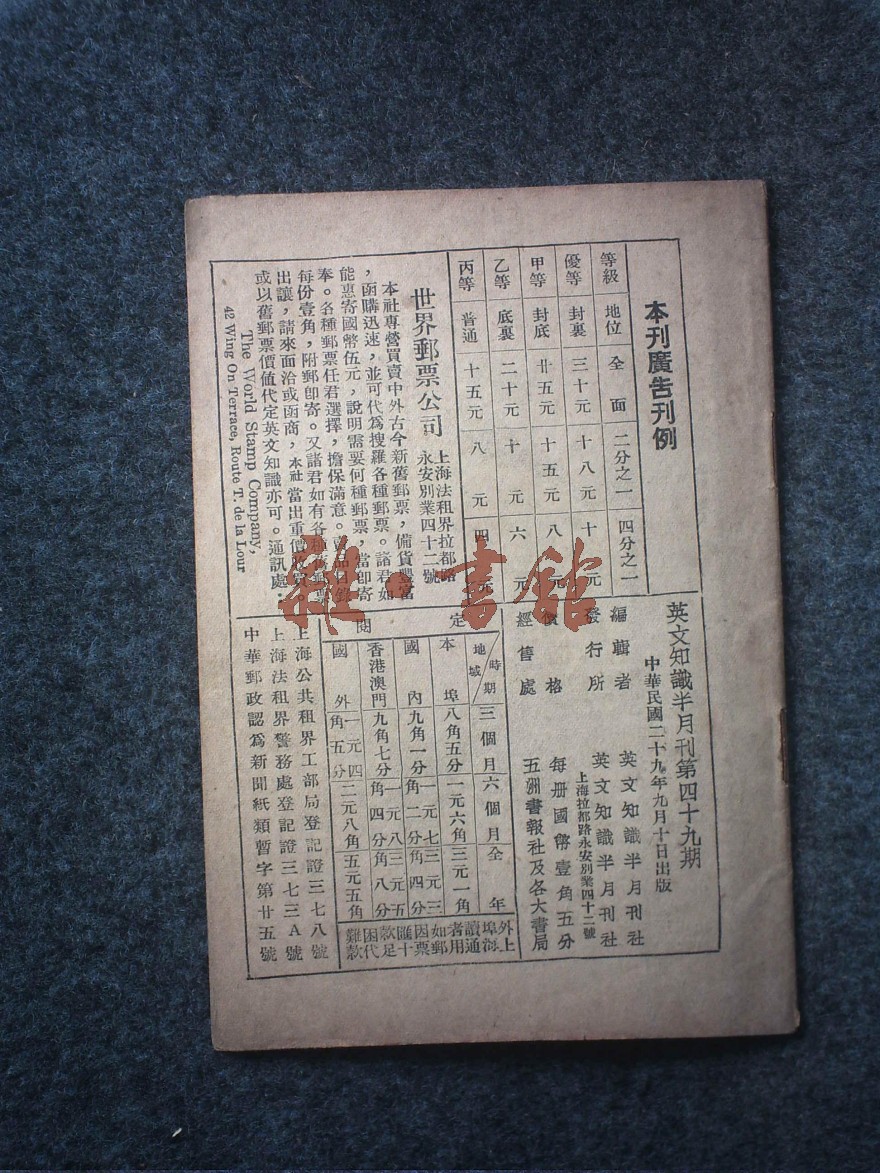 本刊廣告刊例
等級 地位 全面 二分之一 四分之一
優等 封裏 三十元 十八元 十元
甲等 封底 廿五元 十五元 八元
乙等 底裏 二十元 十元 六元
丙等 普通 十五元 八元 四元
世界郵票公司
上海法租界拉都路
永安別業四十二號
本社專營買賣中外古今新舊郵票，備貨豐富
，函購迅速，並可代爲搜羅各種郵票。諸君如
能惠寄國幣伍元，說明需要何種郵票，當卽寄
奉。各種郵票任君選擇，擔保滿意。品目錄
每份壹角，附郵卽寄。又諸君如有各種舊郵票
出讓，請來面洽或函商，本社當出重價收買。
或以舊郵票價值代定英文知識亦可。通訊處：
The World Stamp Company,
42 Wing On Terrace, Route T. de la Lour
英文知識半月刊第四十九期
中華民國二十九年九月十日出版
編輯者 英文知識半月刊社
發行所 英文知識半月刊社
上海拉都路永安別業四十二號
價格 每册國幣壹角五分
經售處 五洲書報社及各大書局
定閱
時期 地域 三個月 六個月 全年
本埠 八角五分 一元六角 三元一角
國內 九角一分 一元七角二分 三元三角
香港澳門 九角七分 一元八角四分 三元五角八分
國外 一元四角五分 二元八角 五元五角
外埠讀者如因匯款困難
上海通用郵票十足代款
上海公共租界工部局登記證三七八號
上海法租界警務處登記證三七三A號
中華郵政認爲新聞紙類暫字第廿五號
雜·書館